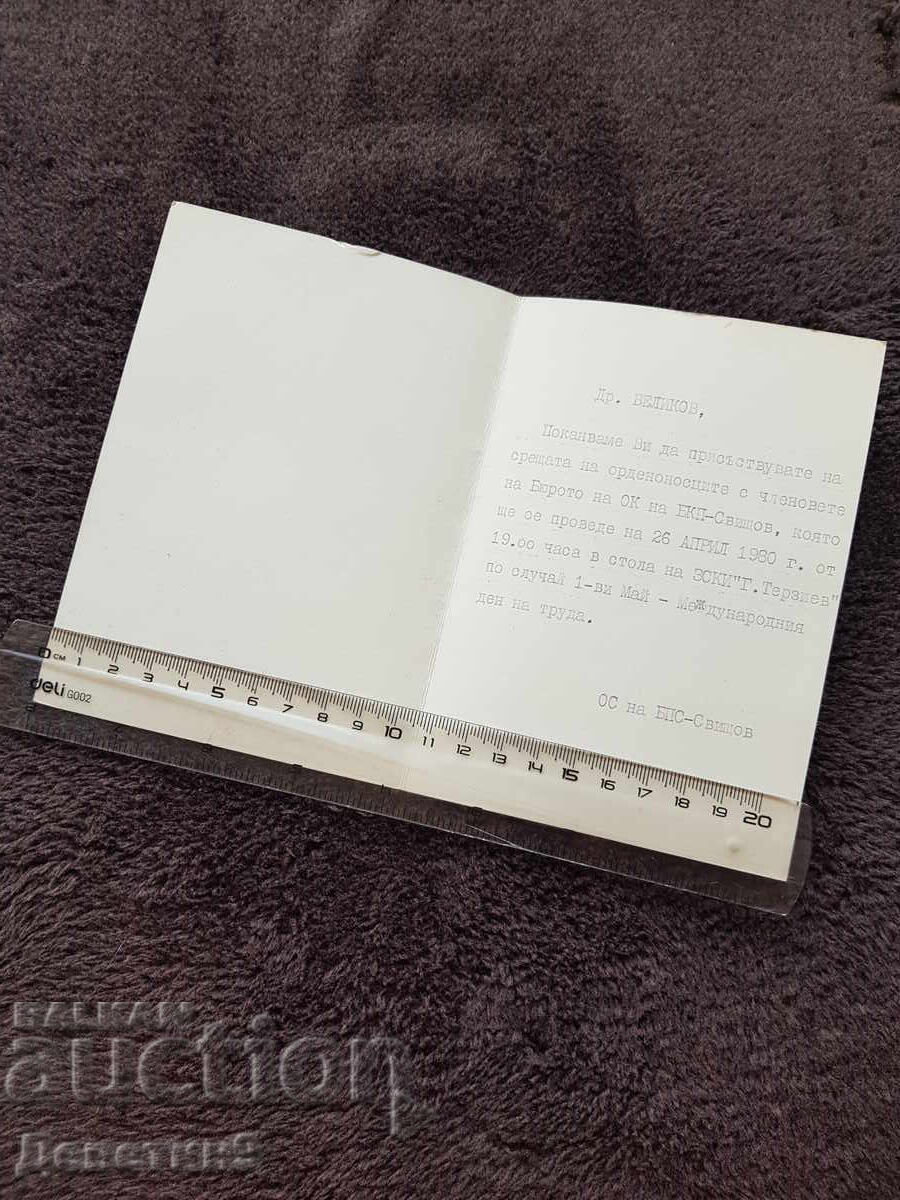 Др. ВЕЛИКОВ,
Поканваме Ви да присъствувате на
срещата на орденоносците с членовете
на Бюрото на ОК на БКП-Свищов, която
ще се проведе на 26 АПРИЛ 1980 г. от
19.оо часа в стола на ЗСКИ"Г.Терзиев"
по случай 1-ви Май - Международния
ден на труда.
ОС на БПС-Свищов
0 см 1 2 3 4 5 6 7 8 9 10 11 12 13 14 15 16 17 18 19 20
deli G002
BALKAN
auction
Деветки9